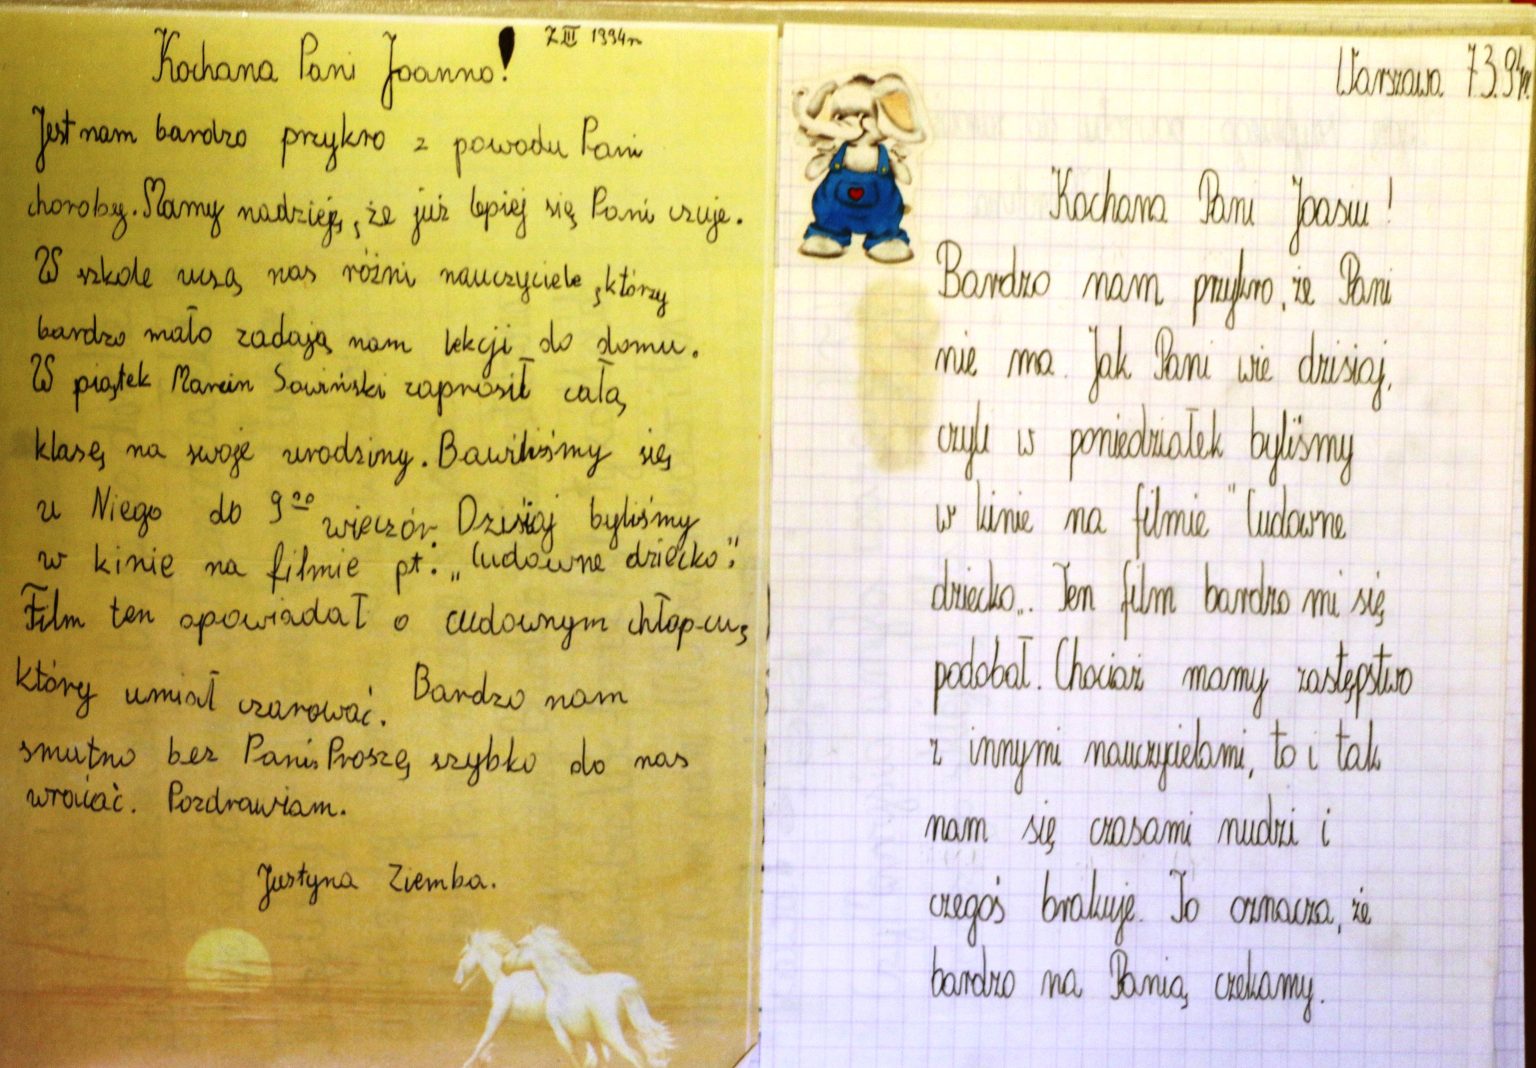 7 III 1994r
Kochana Pani Joanno!
Jest nam bardzo przykro z powodu Pani
choroby. Mamy nadzieję, że już lepiej się Pani czuje.
W szkole uczą nas różni nauczyciele, którzy
bardzo mało zadają nam lekcji do domu.
W piątek Marcin Sawiński zaprosił całą
klasę na swoje urodziny. Bawiliśmy się
u Niego do 9⁰⁰ wieczór. Dzisiaj byliśmy
w kinie na filmie pt: „Cudowne dziecko".
Film ten opowiadał o cudownym chłopcu,
który umiał czarować. Bardzo nam
smutno bez Pani. Proszę szybko do nas
wrócić. Pozdrawiam.
Justyna Ziemba.
Warszawa 7.3.94r.
Kochana Pani Joasiu!
Bardzo nam przykro, że Pani
nie ma. Jak Pani wie dzisiaj,
czyli w poniedziałek byliśmy
w kinie na filmie "Cudowne
dziecko„. Ten film bardzo mi się
podobał. Chociaż mamy zastępstwo
z innymi nauczycielami, to i tak
nam się czasami nudzi i
czegoś brakuje. To oznacza, że
bardzo na Panią czekamy.